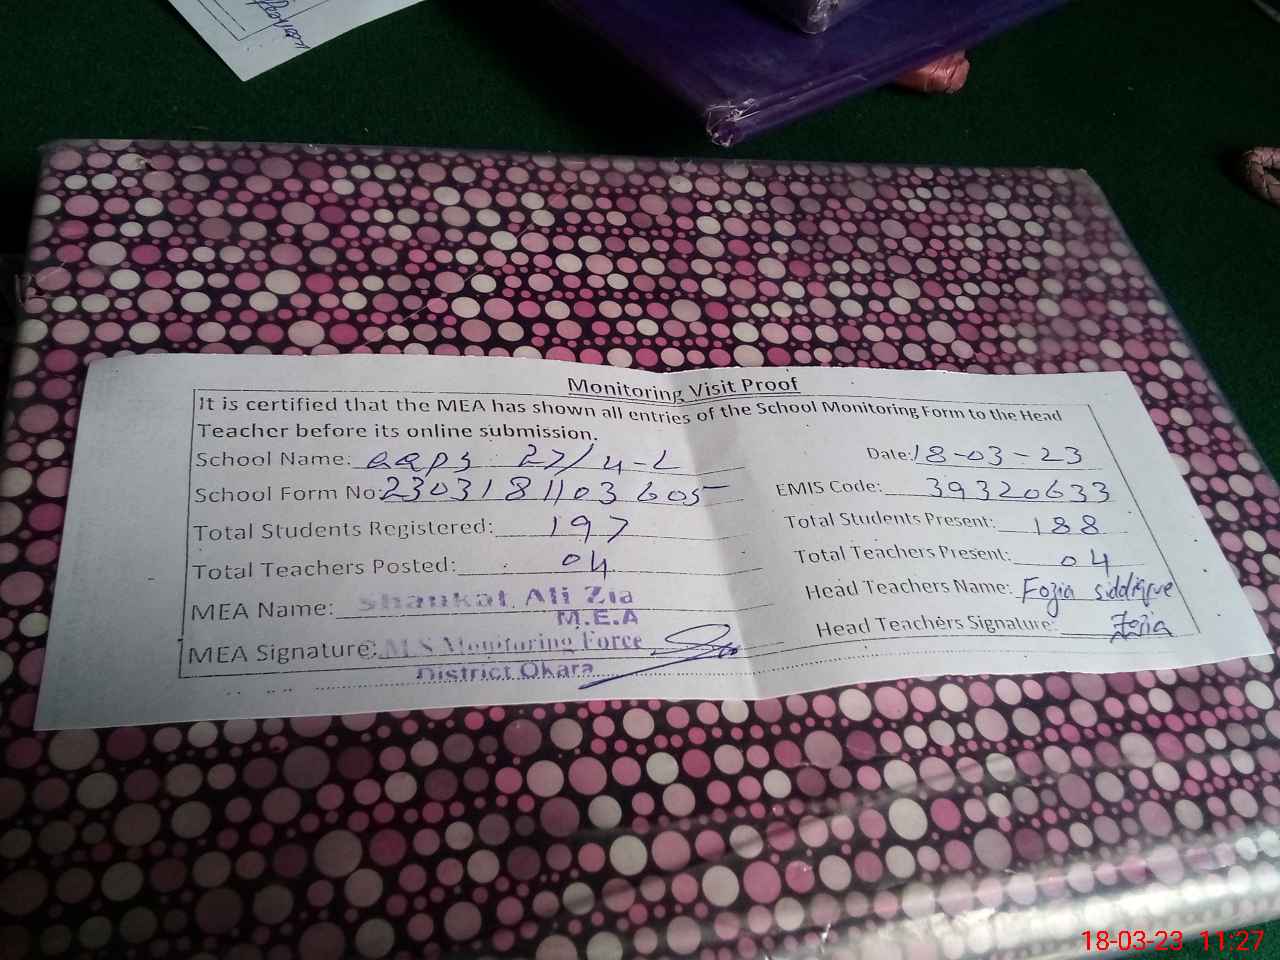 Monitoring Visit Proof
It is certified that the MEA has shown all entries of the School Monitoring Form to the Head
Teacher before its online submission.
School Name: GGPS 27/4-L Date: 18-03-23
School Form No: 2303181103605 EMIS Code: 39320633
Total Students Registered: 197 Total Students Present: 188
Total Teachers Posted: 04 Total Teachers Present: 04
MEA Name: Shaukat Ali Zia Head Teachers Name: Fozia siddique
M.E.A
MEA Signature: Monitoring Force Head Teachers Signature: Fozia
District Okara
18-03-23 11:27